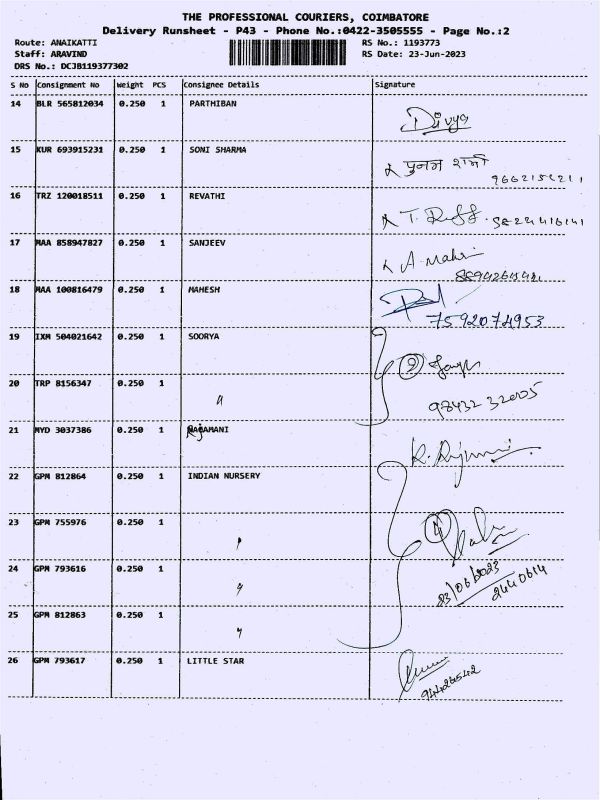 THE PROFESSIONAL COURIERS, COIMBATORE
Delivery Runsheet - P43 - Phone No.:0422-3505555 - Page No.:2
Route: ANAIKATTI RS No.: 1193773
Staff: ARAVIND RS Date: 23-Jun-2023
DRS No.: DCJB119377302
S No Consignment No Weight PCS Consignee Details Signature
14 BLR 565812034 0.250 1 PARTHIBAN Divya
15 KUR 693915231 0.250 1 SONI SHARMA पुनम शर्मा
16 TRZ 120018511 0.250 1 REVATHI
17 MAA 858947827 0.250 1 SANJEEV A. Mahi
18 MAA 100816479 0.250 1 MAHESH
7592074953
19 IXM 504021642 0.250 1 SOORYA 2
20 TRP 8156347 0.250 1 〃
98432 32005
21 MYD 3037386 0.250 1 RAJAMANI
22 GPM 812864 0.250 1 INDIAN NURSERY
23 GPM 755976 0.250 1 〃 4
24 GPM 793616 0.250 1 〃 23/06/2023
2440614
25 GPM 812863 0.250 1 〃
26 GPM 793617 0.250 1 LITTLE STAR